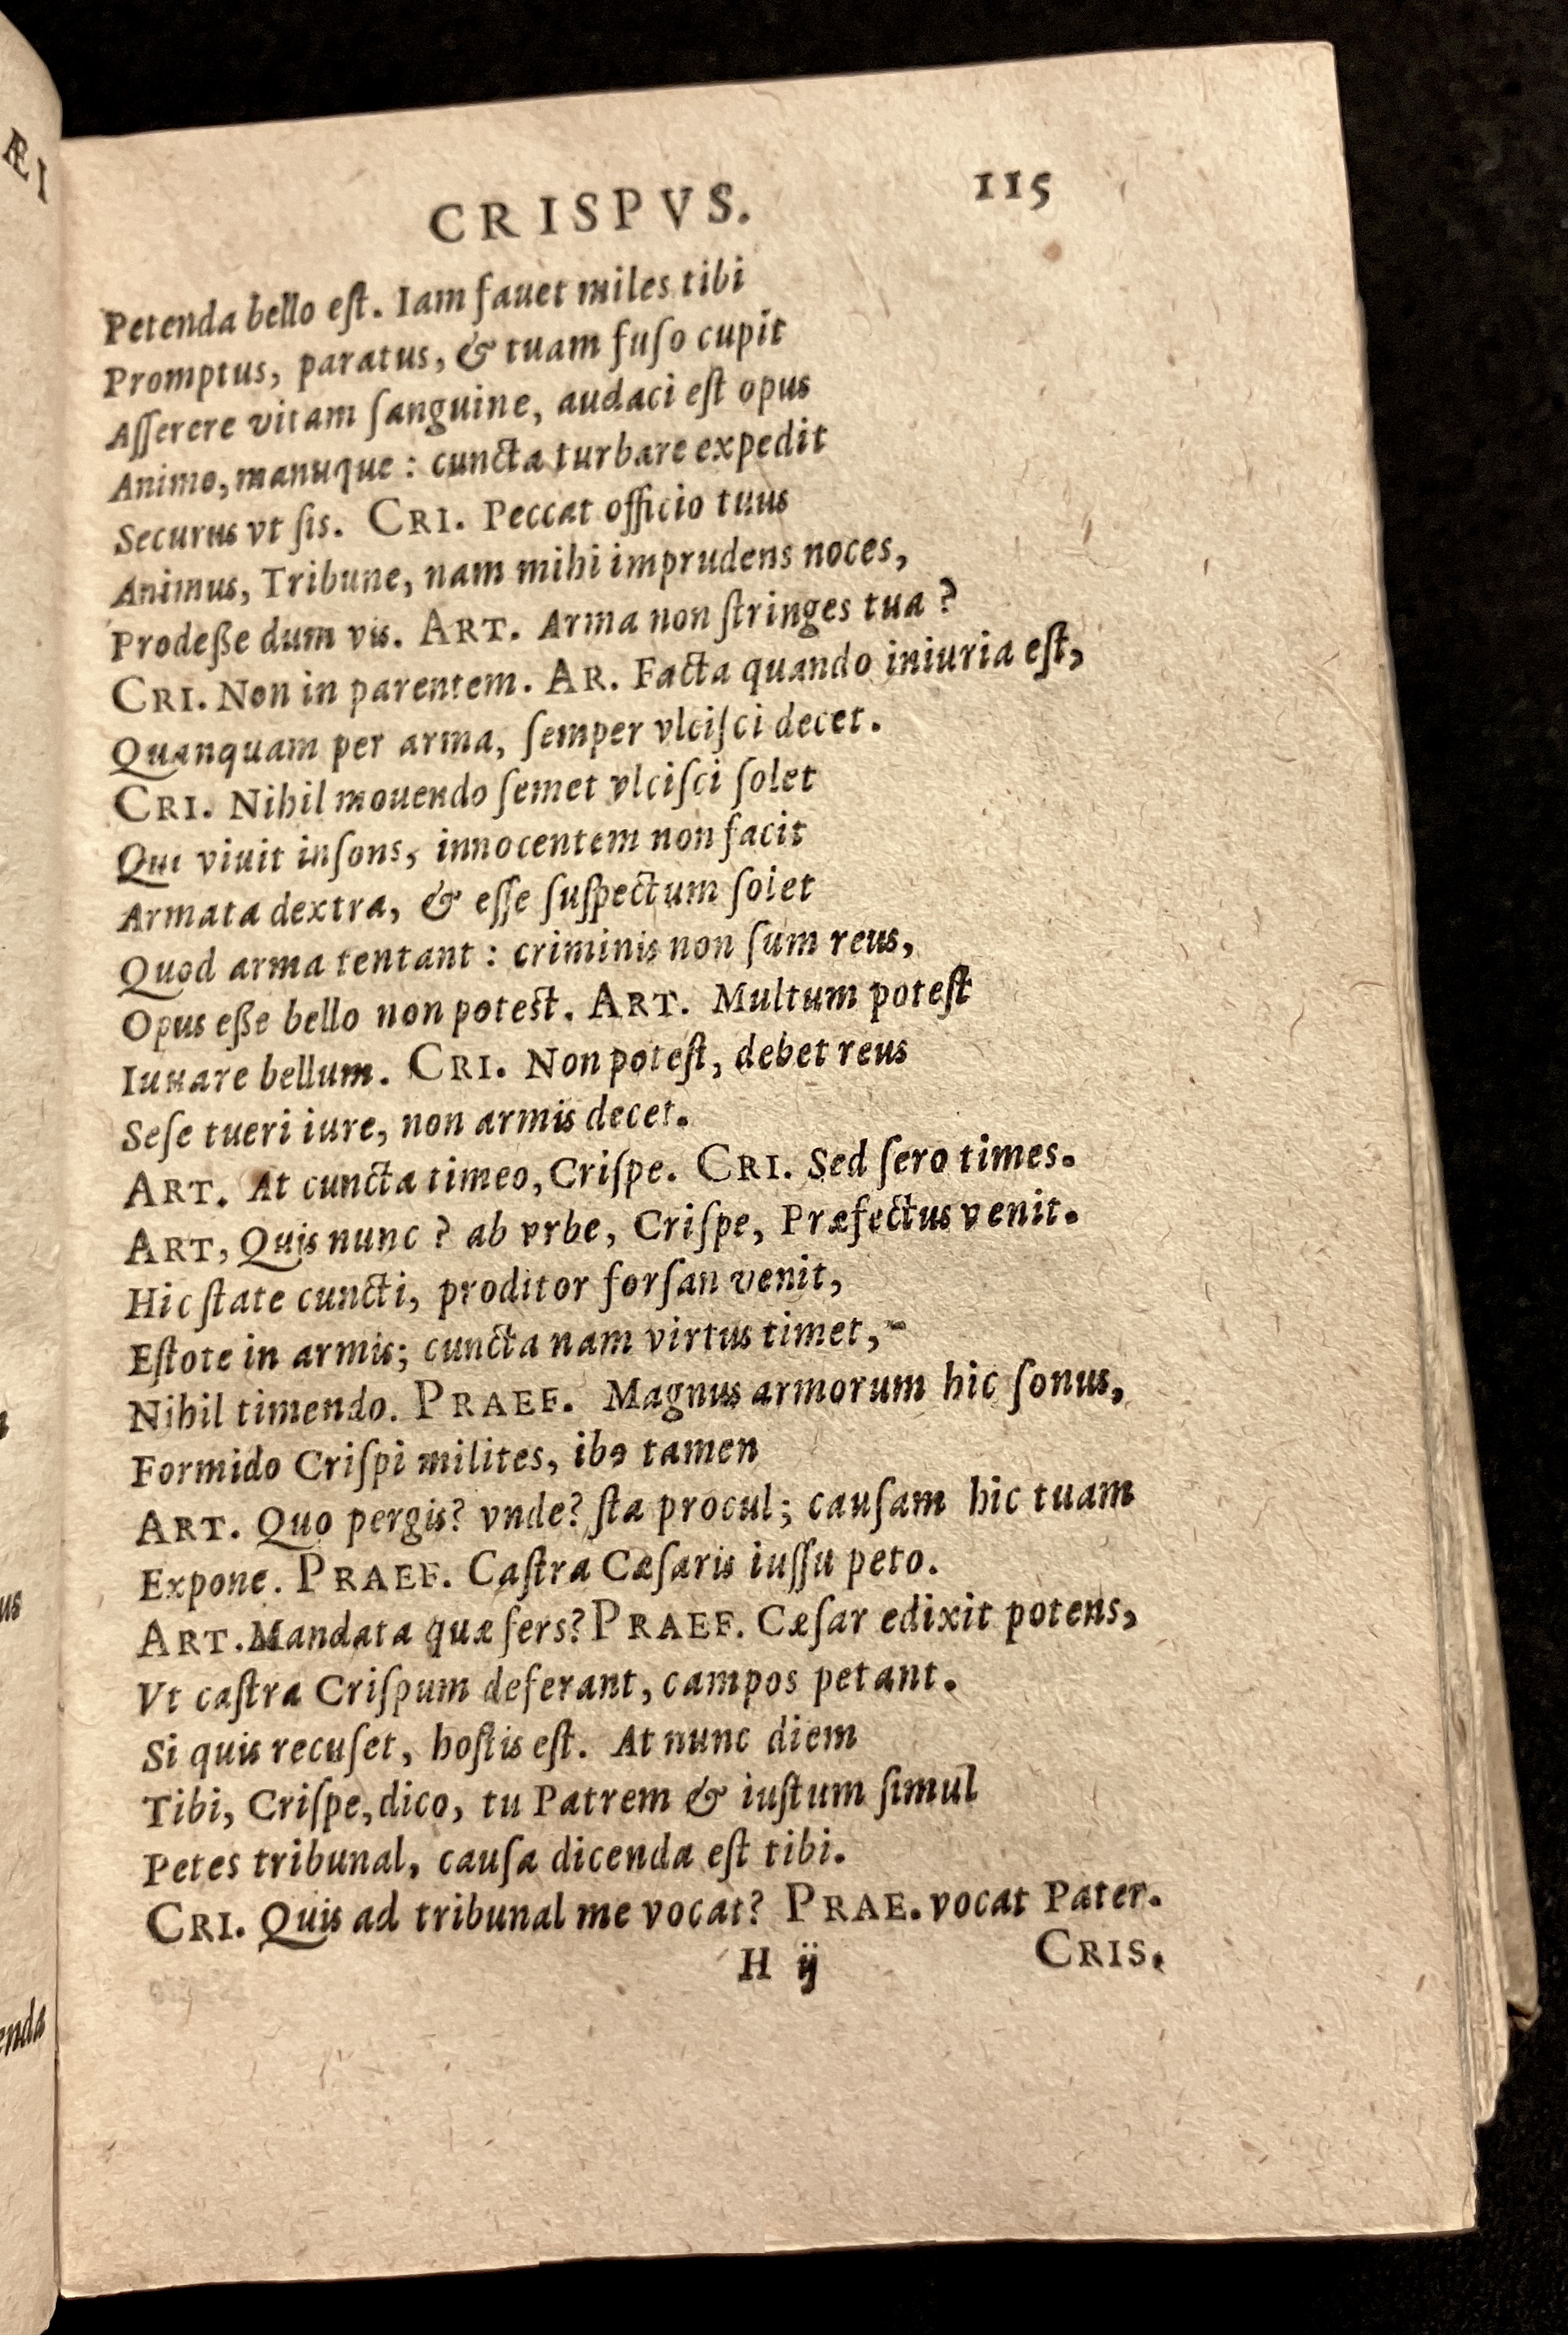 ÆI
CRISPVS. 115
Petenda bello eſt. Iam fauet miles tibi
Promptus, paratus, & tuam fuſo cupit
Aſſerere vitam ſanguine, audaci eſt opus
Animo, manuque : cuncta turbare expedit
Securus vt ſis. CRI. Peccat officio tuus
Animus, Tribune, nam mihi imprudens noces,
Prodeße dum vis. ART. Arma non ſtringes tua ?
CRI. Non in parentem. AR. Facta quando iniuria eſt,
Quanquam per arma, ſemper vlciſci decet.
CRI. Nihil mouendo ſemet vlciſci ſolet
Qui viuit inſons, innocentem non facit
Armata dextra, & eſſe ſuſpectum ſolet
Quod arma tentant : criminis non ſum reus,
Opus eße bello non poteſt. ART. Multum poteſt
Iuuare bellum. CRI. Non poteſt, debet reus
Seſe tueri iure, non armis decet.
ART. At cuncta timeo, Criſpe. CRI. Sed ſero times.
ART, Quis nunc ? ab vrbe, Criſpe, Præfectus venit.
Hic ſtate cuncti, proditor forſan venit,
Eſtote in armis; cuncta nam virtus timet,
Nihil timendo. PRAEF. Magnus armorum hic ſonus,
Formido Criſpi milites, ibo tamen
ART. Quo pergis? vnde? ſta procul; cauſam hic tuam
Expone. PRAEF. Caſtra Cæſaris iuſſu peto.
ART. Mandata quæ fers? PRAEF. Cæſar edixit potens,
Vt caſtra Criſpum deferant, campos petant.
Si quis recuſet, hoſtis eſt. At nunc diem
Tibi, Criſpe, dico, tu Patrem & iuſtum ſimul
Petes tribunal, cauſa dicenda eſt tibi.
CRI. Quis ad tribunal me vocat? PRAE. vocat Pater.
H ij CRIS.